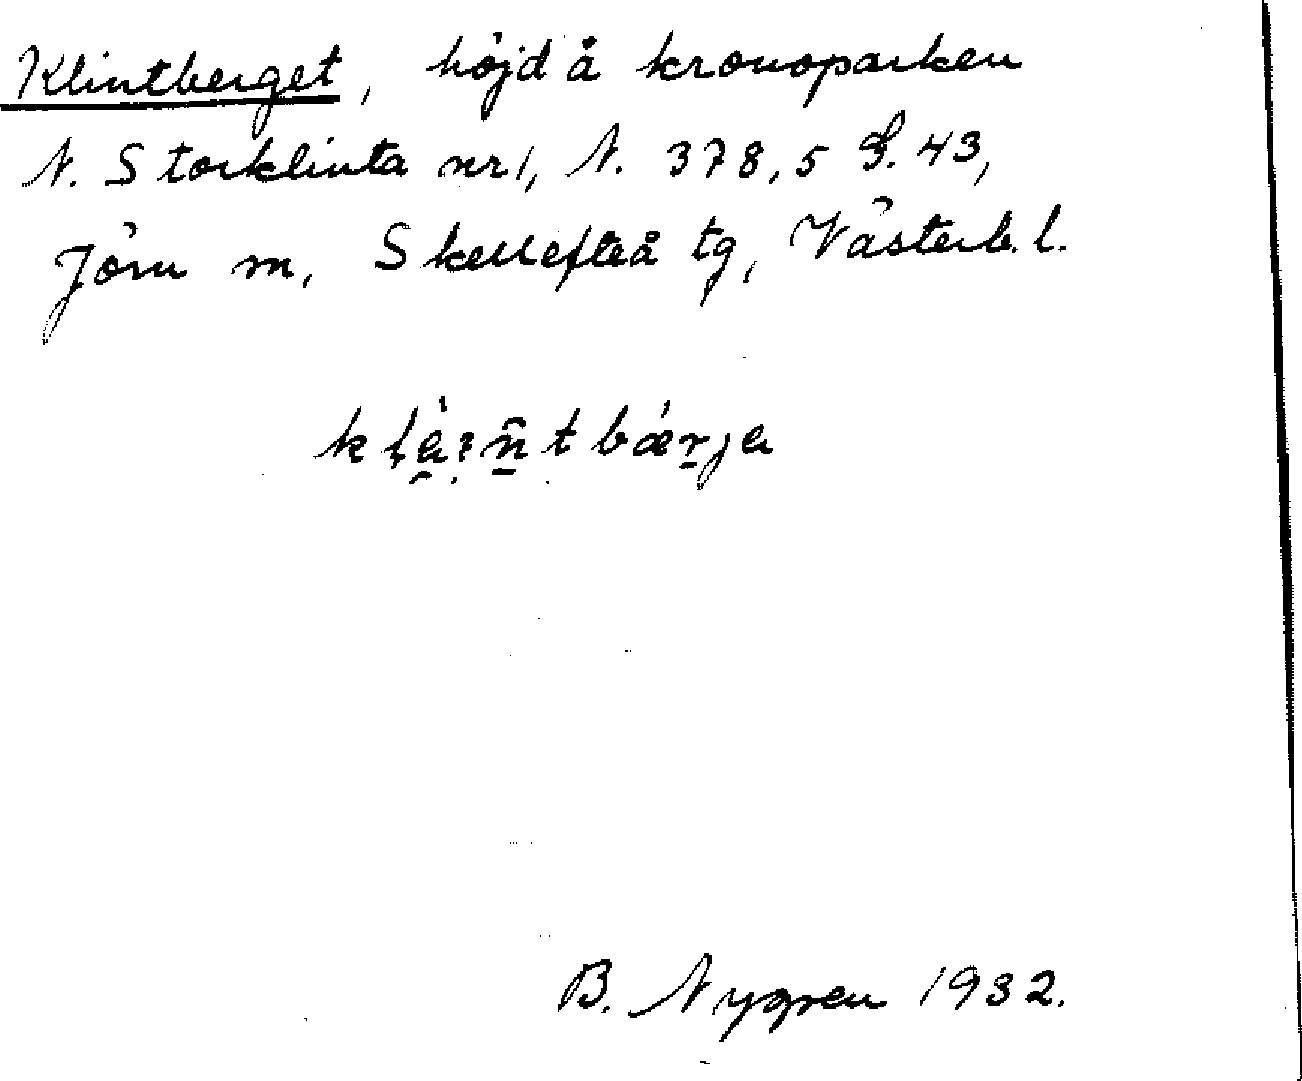 Klintberget, höjd å kronoparken
N. Storklinta nr 1, N. 378,5 S. 43,
Jörn m, Skellefteå tg, Västerb. l.
B. Nygren 1932.